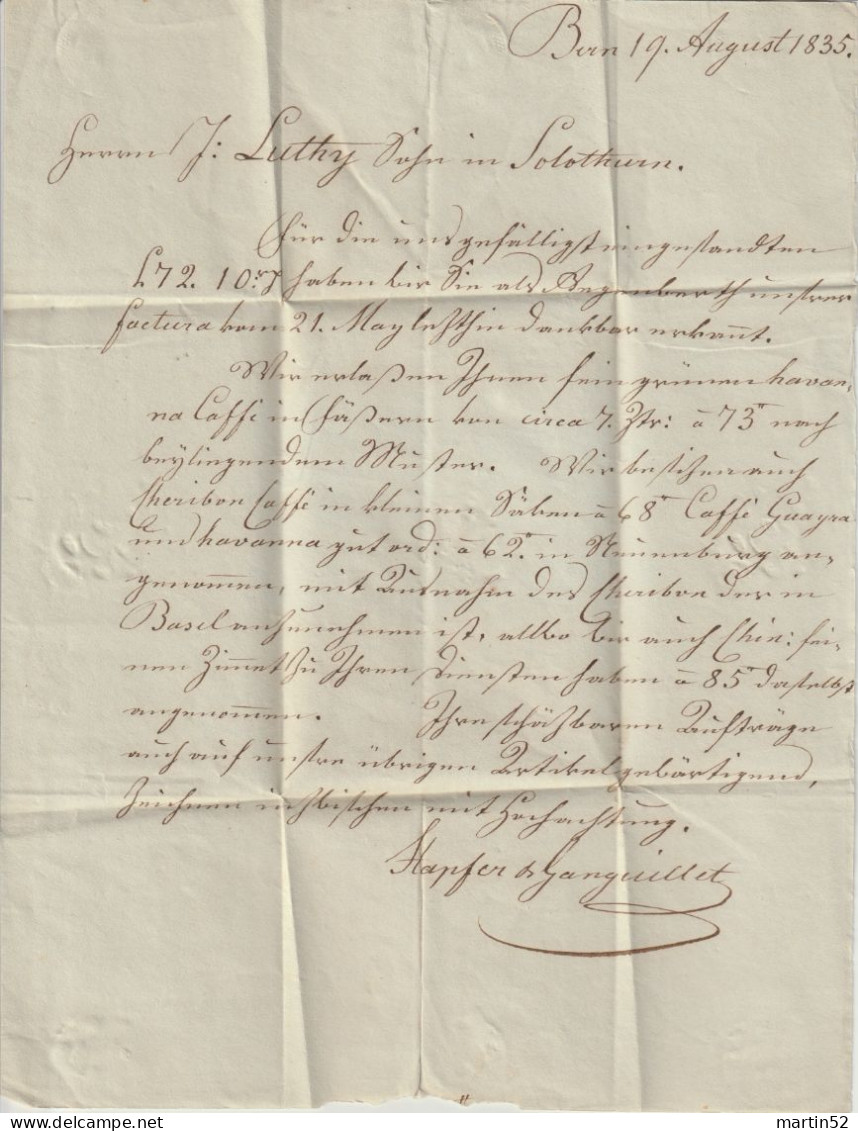 Bern 19. August 1835.
Herrn J: Luthy Sohn in Solothurn.
Für die uns gefälligst eingesandten
L 72. 10. haben wir Sie als Gegenwerth unsrer
factura vom 21. May letzthin dankbar erkannt.
Wir erlaßen Ihnen fein grünen havan-
na Caffé in Fäßern von circa 7. Ztr: à 73 nach
beyliegendem Muster. Wir besitzen auch
Cheribon Caffé in kleinen Säken à 68 Caffé Guayra
und havanna gut ord: à 62. in Neuenburg an-
genommen, mit Ausnahm des Cheribon der in
Basel anzunehmen ist, allwo wir auch Chin: fei-
nen Zimmet zu Ihren Diensten haben à 85 daselbst
angenommen. Ihre schätzbaren Aufträge
auch auf unsre übrigen Artikel gewärtigend,
Zeichnen inzwischen mit Hochachtung.
Stapfer & Ganguillet
martin52